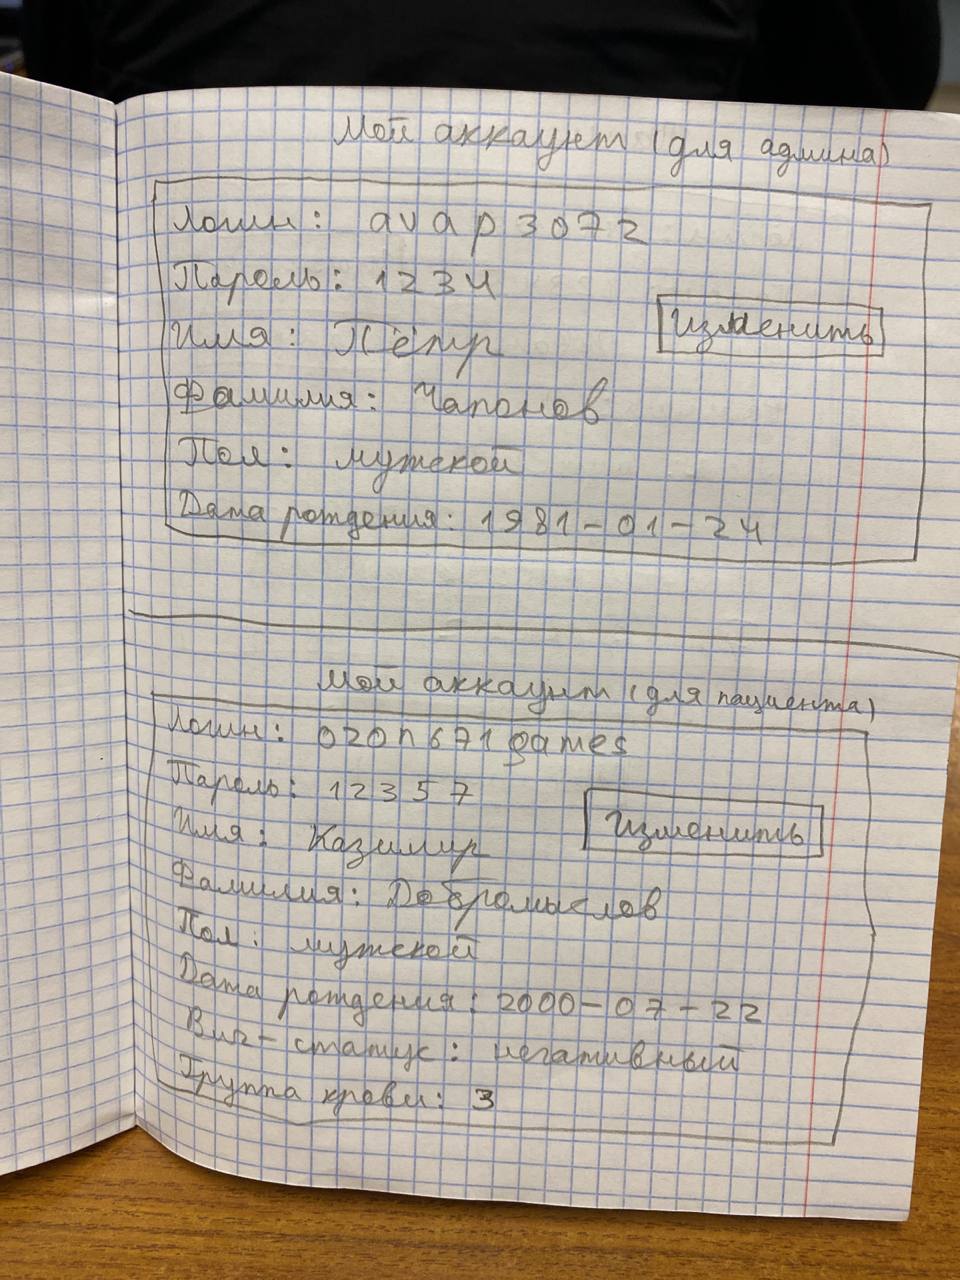 Мой аккаунт (для админа)
Логин: avap3072
Пароль: 1234
Изменить
Имя: Пётр
Фамилия: Чапонов
Пол: мужской
Дата рождения: 1981-01-24
Мой аккаунт (для пациента)
Логин: ozon671games
Пароль: 12357
Изменить
Имя: Казимир
Фамилия: Добромыслов
Пол: мужской
Дата рождения: 2000-07-22
Вич-статус: негативный
Группа крови: 3